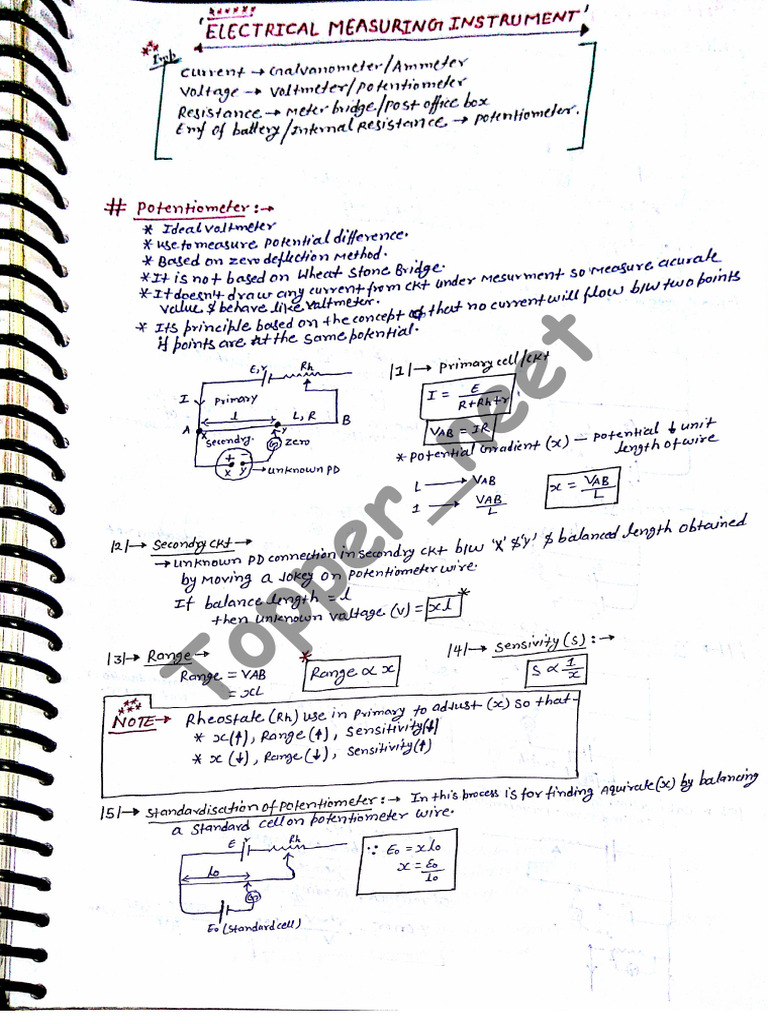 'ELECTRICAL MEASURING INSTRUMENT'
Imp
Current → Galvanometer/Ammeter
Voltage → Voltmeter/Potentiometer
Resistance → Meter bridge/Post office box
Emf of battery/Internal Resistance → potentiometer.
# Potentiometer :→
* Ideal voltmeter
* use to measure Potential difference.
* Based on zero deflection Method.
* It is not based on Wheat Stone Bridge.
* It doesn't draw any current from ckt under mesurment so measure acurate
value & behave like valtmeter.
* Its principle based on the concept of that no current will flow b/w two points
if points are at the same potential.
E, r Rh
I Primary
l L, R
A x y B
Secondry. G zero
+ -
x y → unknown PD
|1|→ Primary cell/ckt
I = E / R+Rh+r
VAB = IR
* Potential Gradient (x) — potential ↓ unit
length of wire
L → VAB
1 → VAB / L
x = VAB / L
|2|→ Secondry ckt →
→ unknown PD connection in secondry ckt b/w 'X' & 'Y' & balanced length obtained
by moving a Jokey on potentiometer wire.
If balance length = l
then unknown voltage (v) = xl *
|3|→ Range →
Range = VAB
= xL
* Range ∝ x
|4|→ Sensivity (S) :→
S ∝ 1/x
NOTE → Rheostate (Rh) use in primary to adjust (x) so that-
* x(↑), Range (↑), Sensitivity(↓)
* x (↓), Range (↓), Sensitivity(↑)
|5|→ Standardisation of Potentiometer :→ In this process is for finding Aquirate(x) by balancing
a standard cell on potentiometer wire.
E r Rh
l0
G
E0 (Standard cell)
∵ E0 = xl0
x = E0 / l0
Topper_neet